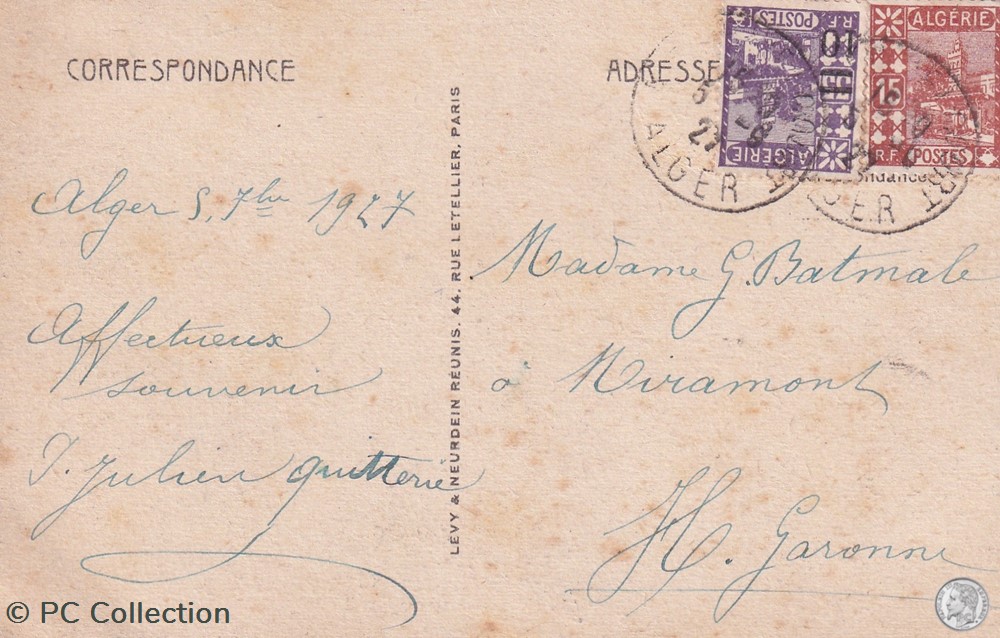 CORRESPONDANCE
Alger 5, 7bre 1927
Affectueux
souvenir
J. Julien Quitterie
LÉVY & NEURDEIN RÉUNIS. 44, RUE LETELLIER, PARIS
ADRESSE
POSTES
R.F.
10
35
ALGÉRIE
ALGÉRIE
15
R.F. POSTES
ALGER
27
ondance
Madame G. Batmale
à Miramont
H. Garonne
© PC Collection